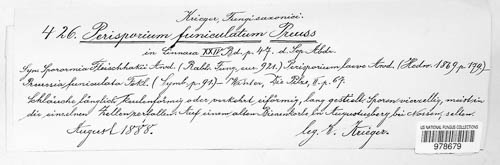 Krieger, Fungi saxonici.
426. Perisporium funiculatum Preuss
in Linnaea XXIV. Bd. p. 47. d. Sep. Abdr.
Syn. Sporormia Fleischhakii Awd. (Rabh. Fung. eur. 921.) Perisporium laeve Awd. (Hedw. 1869 p. 179)
Preussia funiculata Fckl. (Symb. p. 91) – Winter, Die Pilze, II. p. 67.
Schläuche länglich keulenförmig oder verkehrt eiförmig, lang gestielt. Sporen vierzellig, meist in
die einzelnen Zellen zerfallen. Auf einem alten Bienenkorbe in Augustusberg bei Nossen, selten.
August 1888. leg. W. Krieger.
US NATIONAL FUNGUS COLLECTIONS
978679